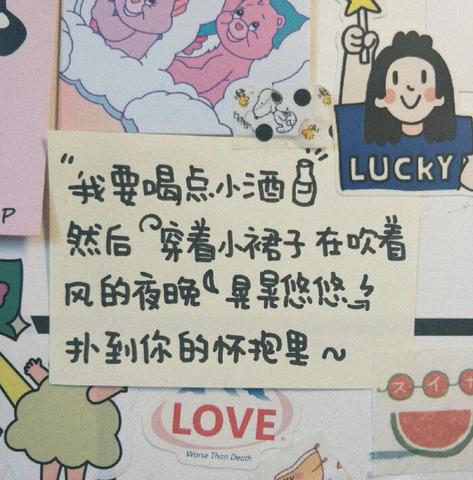 LUCKY
"我要喝点小酒
然后穿着小裙子在吹着
风的夜晚晃晃悠悠
扑到你的怀抱里~
P
LOVE
Worse Than Death
スイ